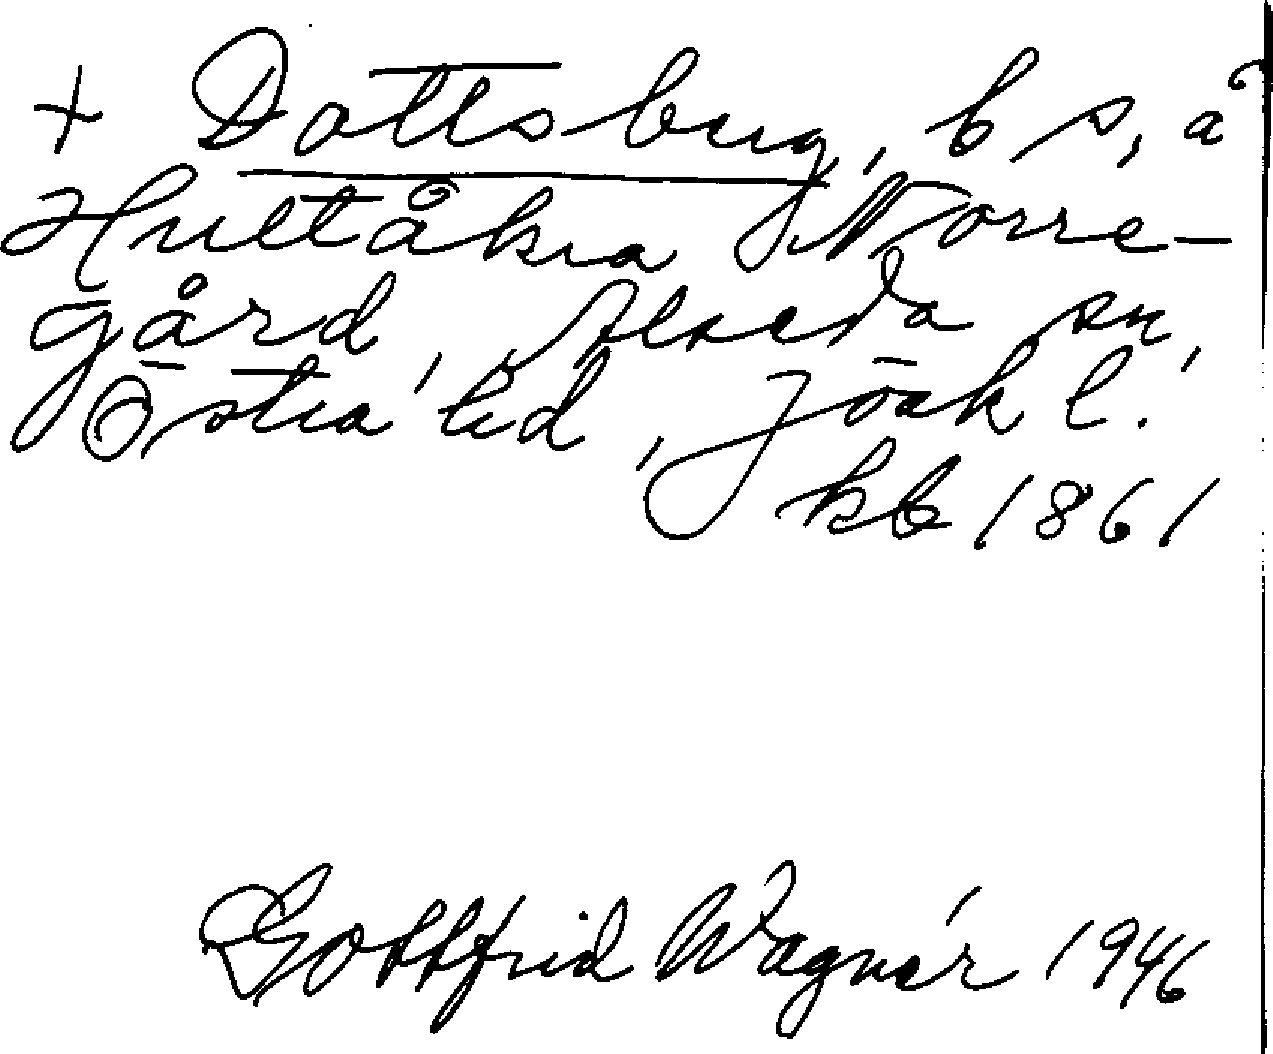 + Dottsburg, bs, å
Hultåkra Norre-
gård, Alseda sn,
Östra hd, Jönk l.
kb 1861
Gottfrid Wagnér 1946